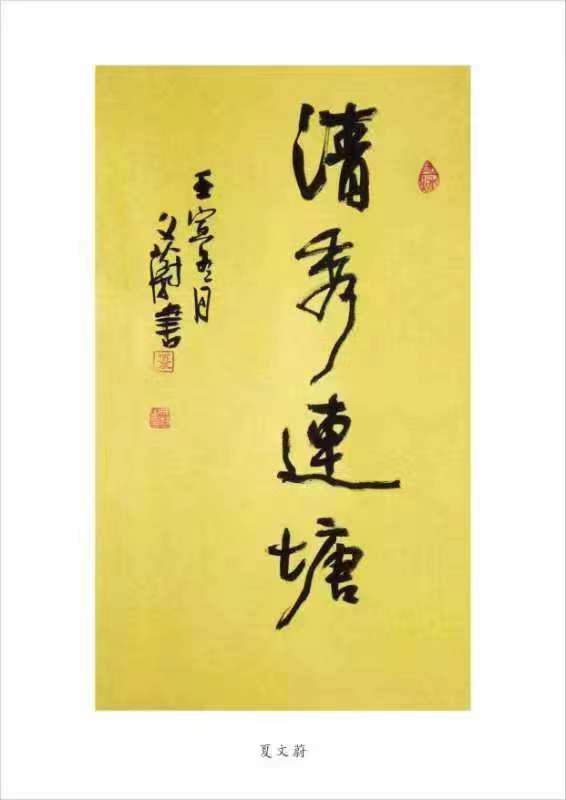 清秀連塘
壬寅五月
文蔚書
夏文蔚